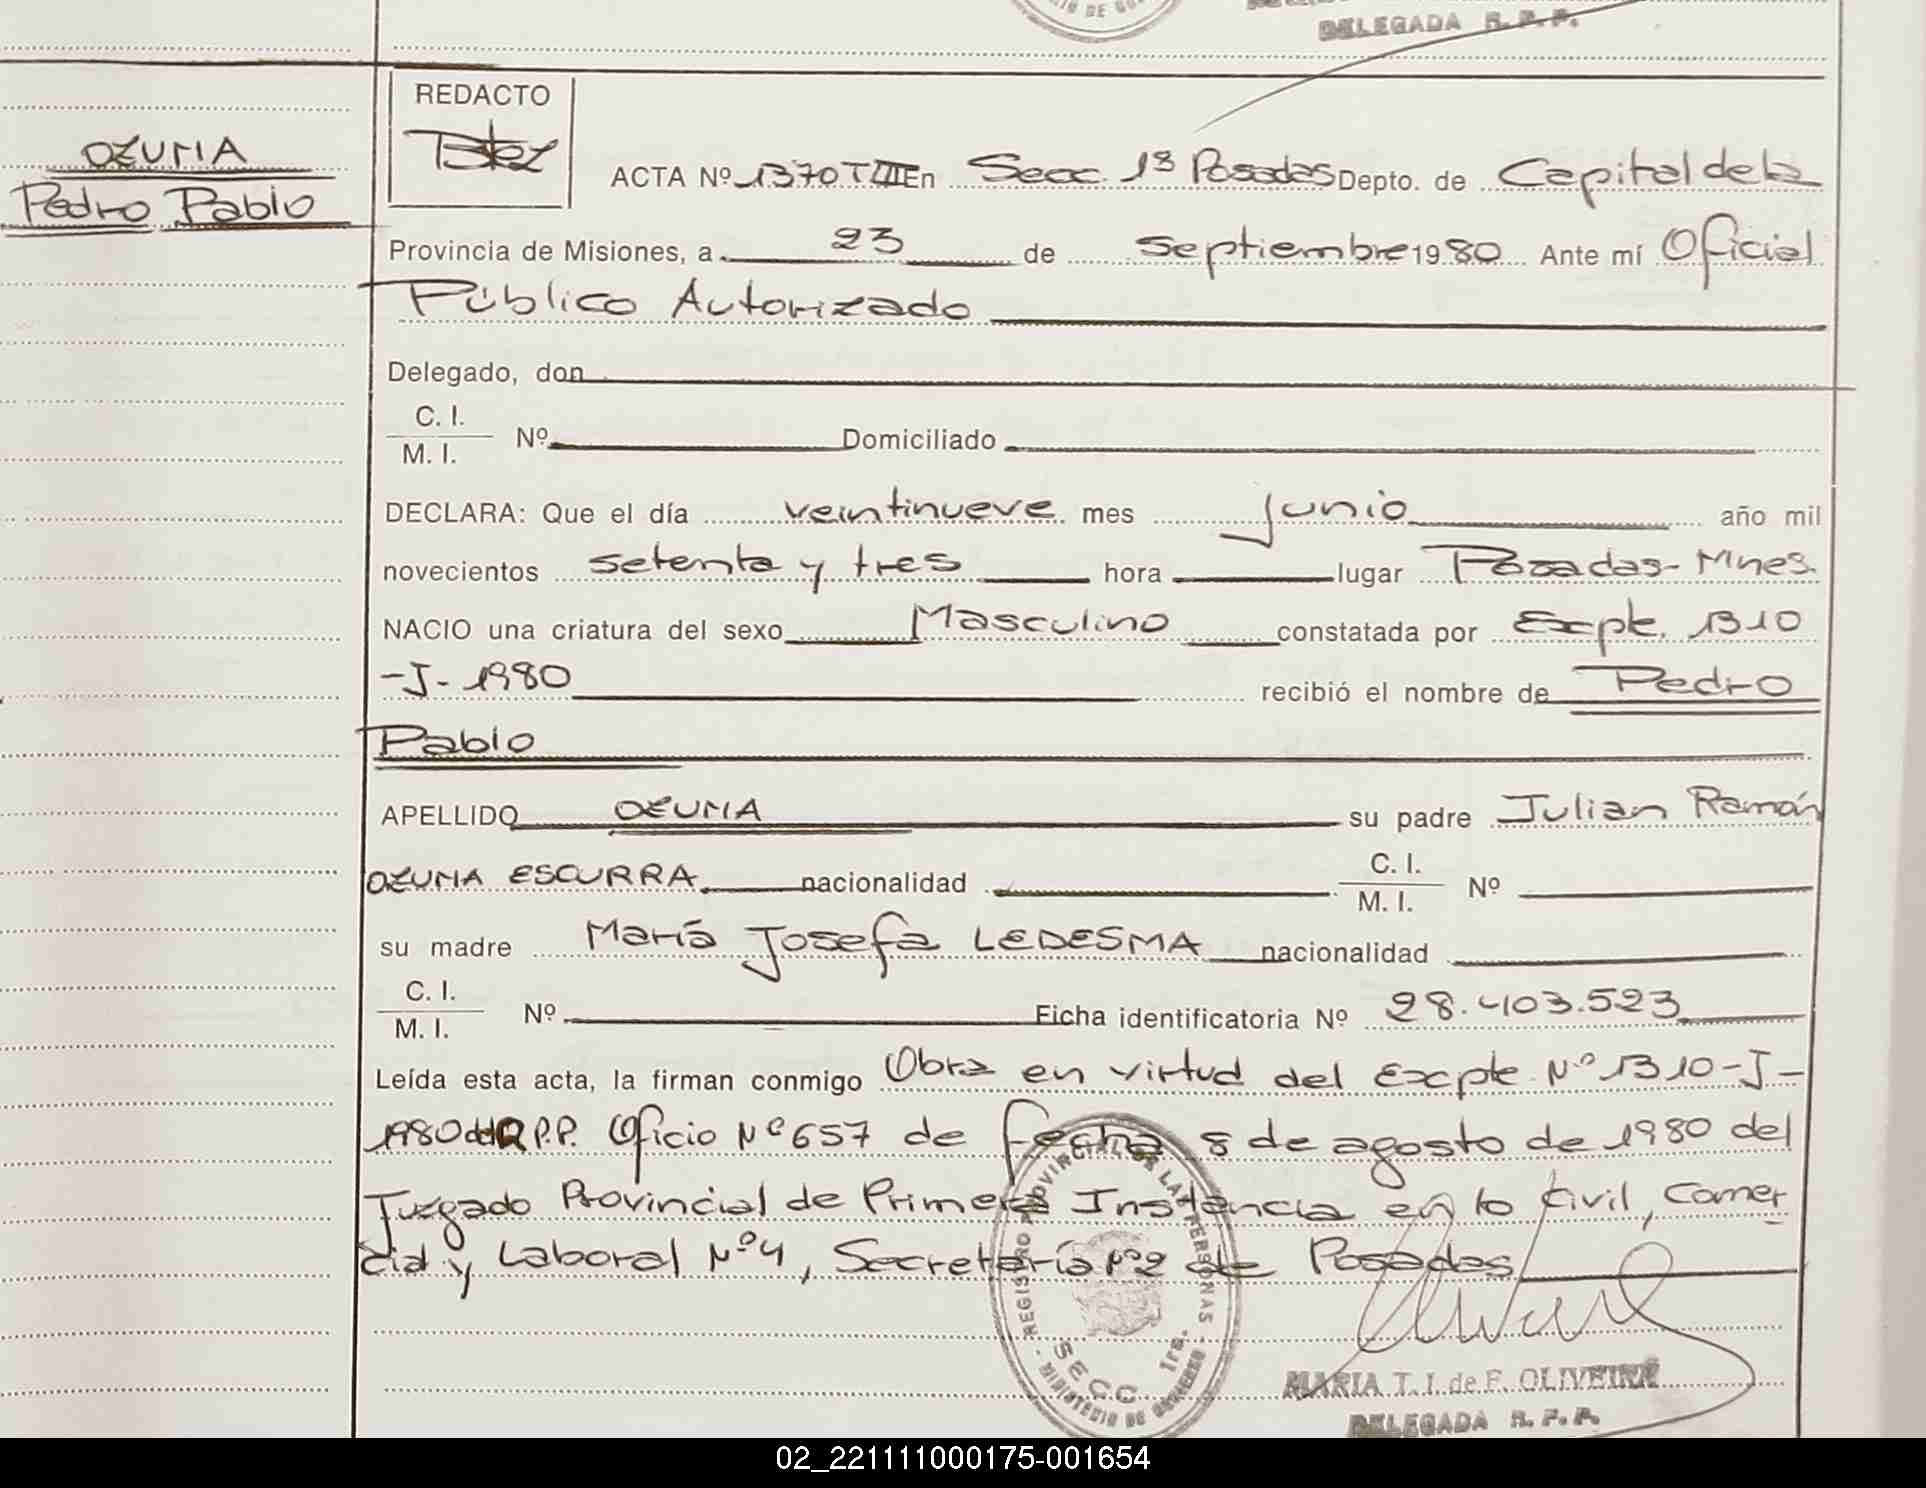 DELEGADA R. P. P.
OZUNA
Pedro Pablo
REDACTO
ACTA Nº 1370 T III En Secc. 1ª Posadas Depto. de Capital de la
Provincia de Misiones, a 23 de Septiembre 1980 Ante mí Oficial
Público Autorizado
Delegado, don
C. I.
M. I. Nº Domiciliado
DECLARA: Que el día veintinueve mes junio año mil
novecientos setenta y tres hora lugar Posadas - Mnes.
NACIO una criatura del sexo Masculino constatada por Expte. 1310
-J- 1980 recibió el nombre de Pedro
Pablo
APELLIDO OZUNA su padre Julian Ramón
OZUNA ESCURRA nacionalidad C. I. M. I. Nº
su madre María Josefa LEDESMA nacionalidad
C. I.
M. I. Nº Ficha identificatoria Nº 28.403.523
Leída esta acta, la firman conmigo Obra en virtud del Expte Nº 1310-J-
1980 P.P. Oficio Nº 657 de fecha 8 de agosto de 1980 del
Juzgado Provincial de Primera Instancia en lo Civil, Comer
cial y Laboral Nº 4, Secretaría Nº 2 de Posadas
REGISTRO PROVINCIAL DE LAS PERSONAS - MINISTERIO DE GOBIERNO -
SECC. 1ra.
MARIA T. I. de F. OLIVEIRA
DELEGADA R. P. P.
02_221111000175-001654